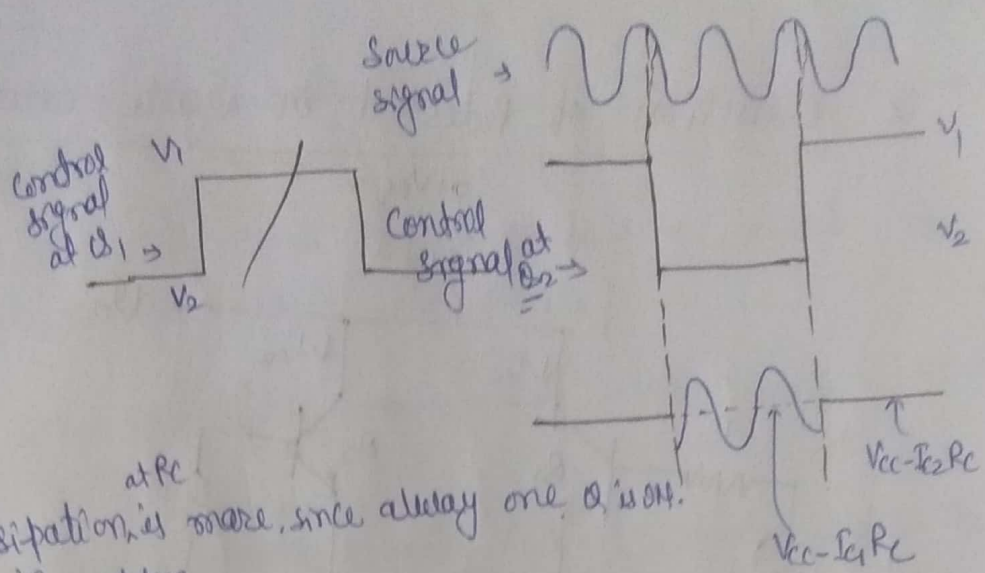 Source
signal →
V1
Control
signal
at Q1 →
V2
Control
signal at
Q2 →
V1
V2
Vcc-Ic2Rc
at Rc
sipation, is more, since alway one Q is ON.
Vcc-Ic1Rc